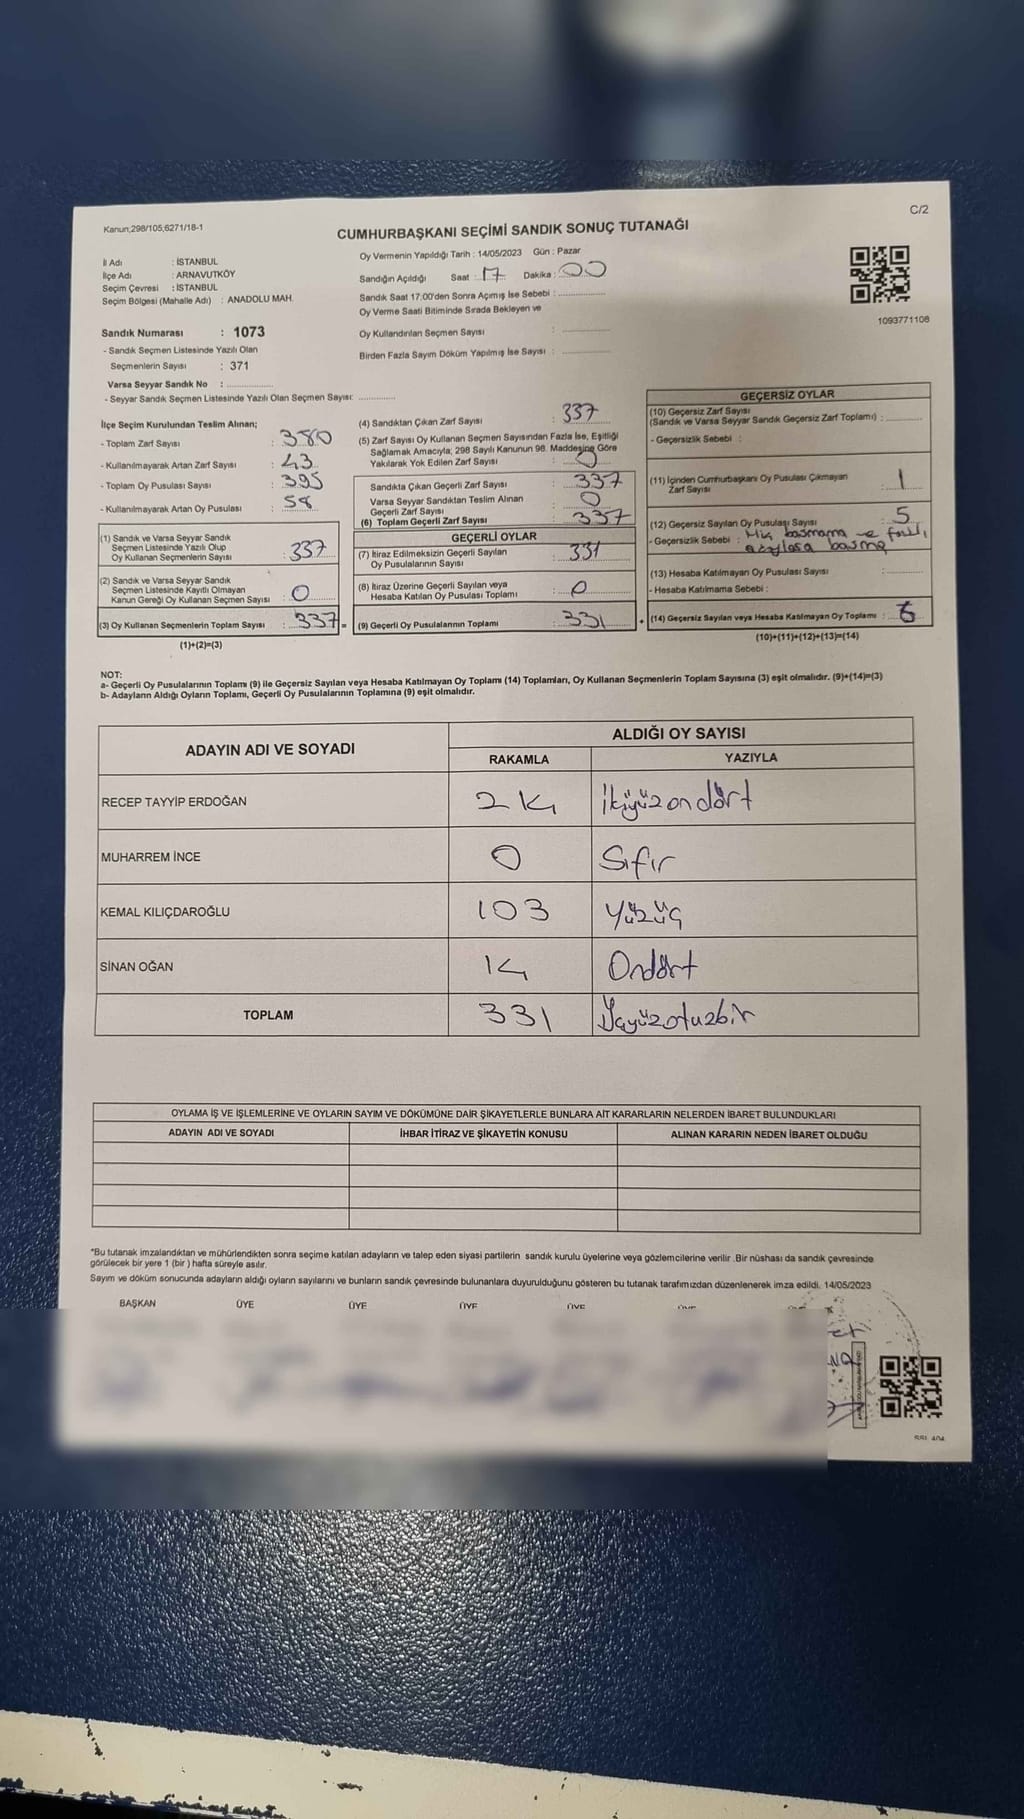 C/2
Kanun,298/105,6271/18-1
CUMHURBAŞKANI SEÇİMİ SANDIK SONUÇ TUTANAĞI
İl Adı : İSTANBUL
İlçe Adı : ARNAVUTKÖY
Seçim Çevresi : İSTANBUL
Seçim Bölgesi (Mahalle Adı) : ANADOLU MAH.
Sandık Numarası : 1073
- Sandık Seçmen Listesinde Yazılı Olan
Seçmenlerin Sayısı : 371
Varsa Seyyar Sandık No :
- Seyyar Sandık Seçmen Listesinde Yazılı Olan Seçmen Sayısı:
Oy Vermenin Yapıldığı Tarih : 14/05/2023 Gün : Pazar
Sandığın Açıldığı Saat : 17 Dakika : 00
Sandık Saat 17:00'den Sonra Açımış İse Sebebi :
Oy Verme Saati Bitiminde Sırada Bekleyen ve
Oy Kullandırılan Seçmen Sayısı :
Birden Fazla Sayım Döküm Yapılmış İse Sayısı :
1093771108
İlçe Seçim Kurulundan Teslim Alınan;
- Toplam Zarf Sayısı : 380
- Kullanılmayarak Artan Zarf Sayısı : 43
- Toplam Oy Pusulası Sayısı : 395
- Kullanılmayarak Artan Oy Pusulası : 58
(1) Sandık ve Varsa Seyyar Sandık
Seçmen Listesinde Yazılı Olup
Oy Kullanan Seçmenlerin Sayısı : 337
(2) Sandık ve Varsa Seyyar Sandık
Seçmen Listesinde Kayıtlı Olmayan
Kanun Gereği Oy Kullanan Seçmen Sayısı : 0
(3) Oy Kullanan Seçmenlerin Toplam Sayısı : 337 =
(1)+(2)=(3)
(4) Sandıktan Çıkan Zarf Sayısı : 337
(5) Zarf Sayısı Oy Kullanan Seçmen Sayısından Fazla İse, Eşitliği
Sağlamak Amacıyla, 298 Sayılı Kanunun 98. Maddesine Göre
Yakılarak Yok Edilen Zarf Sayısı : 0
Sandıkta Çıkan Geçerli Zarf Sayısı : 337
Varsa Seyyar Sandıktan Teslim Alınan
Geçerli Zarf Sayısı : 0
(6) Toplam Geçerli Zarf Sayısı : 337
GEÇERLİ OYLAR
(7) İtiraz Edilmeksizin Geçerli Sayılan
Oy Pusulalarının Sayısı : 331
(8) İtiraz Üzerine Geçerli Sayılan veya
Hesaba Katılan Oy Pusulası Toplamı : 0
(9) Geçerli Oy Pusulalarının Toplamı : 331 +
GEÇERSİZ OYLAR
(10) Geçersiz Zarf Sayısı
(Sandık ve Varsa Seyyar Sandık Geçersiz Zarf Toplamı) :
- Geçersizlik Sebebi :
(11) İçinden Cumhurbaşkanı Oy Pusulası Çıkmayan
Zarf Sayısı : 1
(12) Geçersiz Sayılan Oy Pusulası Sayısı : 5
- Geçersizlik Sebebi : Hiç basmama ve fazla
basma
(13) Hesaba Katılmayan Oy Pusulası Sayısı :
- Hesaba Katılmama Sebebi :
(14) Geçersiz Sayılan veya Hesaba Katılmayan Oy Toplamı : 6
(10)+(11)+(12)+(13)=(14)
NOT:
a- Geçerli Oy Pusulalarının Toplamı (9) ile Geçersiz Sayılan veya Hesaba Katılmayan Oy Toplamı (14) Toplamları, Oy Kullanan Seçmenlerin Toplam Sayısına (3) eşit olmalıdır. (9)+(14)=(3)
b- Adayların Aldığı Oyların Toplamı, Geçerli Oy Pusulalarının Toplamına (9) eşit olmalıdır.
ADAYIN ADI VE SOYADI ALDIĞI OY SAYISI
RAKAMLA YAZIYLA
RECEP TAYYİP ERDOĞAN 214 İkiyüzondört
MUHARREM İNCE 0 Sıfır
KEMAL KILIÇDAROĞLU 103 Yüzüç
SİNAN OĞAN 14 Ondört
TOPLAM 331 Üçyüzotuzbir
OYLAMA İŞ VE İŞLEMLERİNE VE OYLARIN SAYIM VE DÖKÜMÜNE DAİR ŞİKAYETLERLE BUNLARA AİT KARARLARIN NELERDEN İBARET BULUNDUKLARI
ADAYIN ADI VE SOYADI İHBAR İTİRAZ VE ŞİKAYETİN KONUSU ALINAN KARARIN NEDEN İBARET OLDUĞU
"Bu tutanak imzalandıktan ve mühürlendikten sonra seçime katılan adayların ve talep eden siyasi partilerin sandık kurulu üyelerine veya gözlemcilerine verilir .Bir nüshası da sandık çevresinde
görülecek bir yere 1 (bir ) hafta süreyle asılır.
Sayım ve döküm sonucunda adayların aldığı oyların sayılarını ve bunların sandık çevresinde bulunanlara duyurulduğunu gösteren bu tutanak tarafımızdan düzenlenerek imza edildi. 14/05/2023
BAŞKAN ÜYE ÜYE ÜYE ÜYE